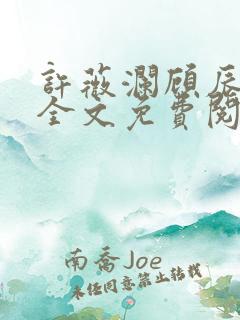 許薇瀾顧辰
全文免費閱
南喬Joe
未經同意禁止轉載